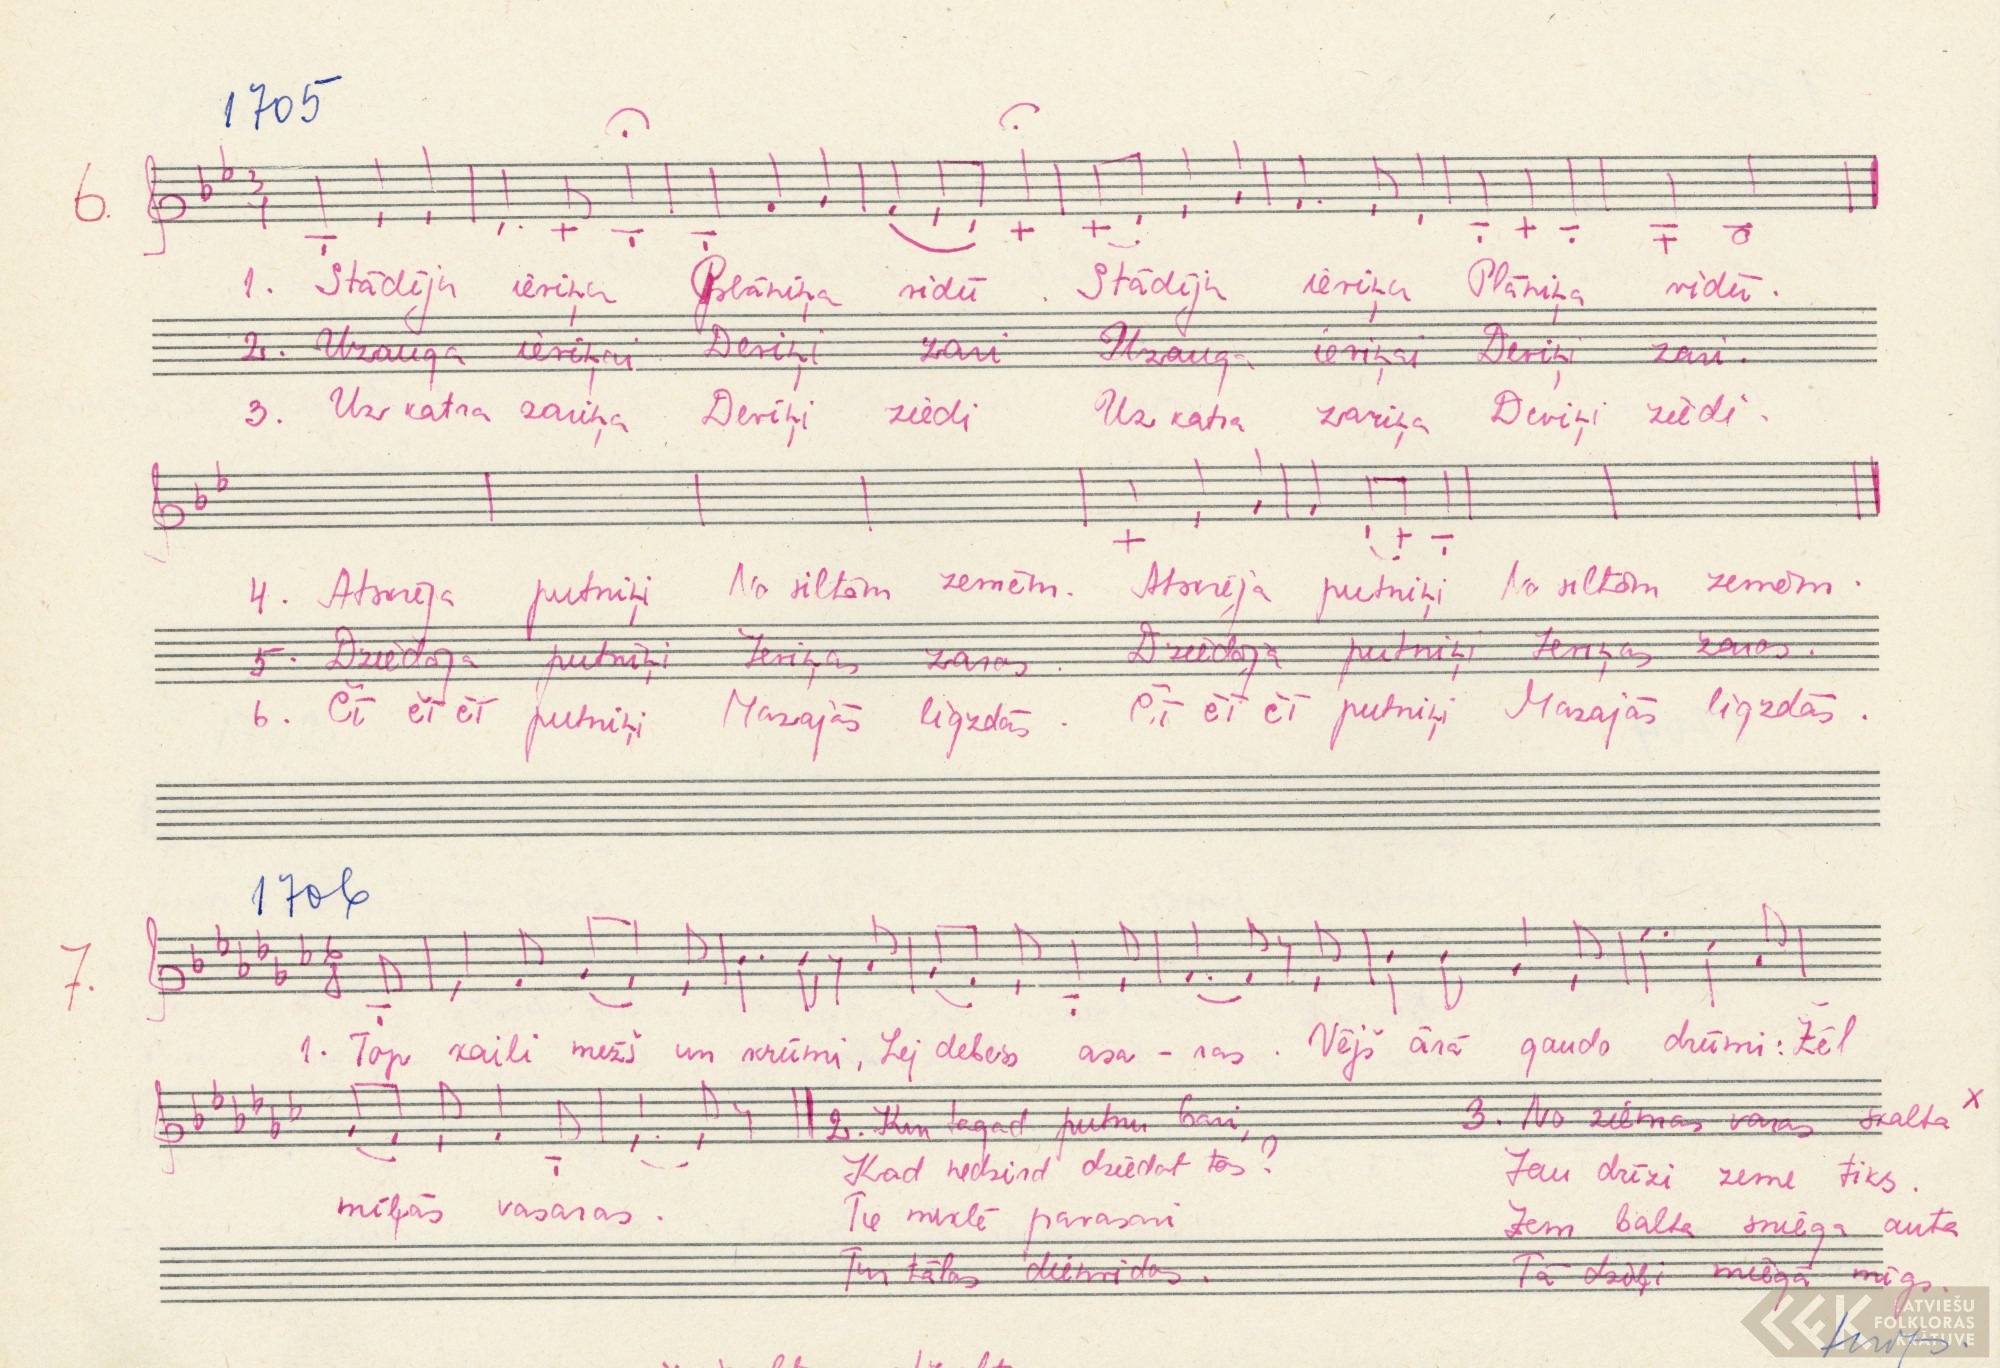 1705
6.
3
4
1. Stādīju ieviņu Plāniņa vidū. Stādīju ieviņu Plāniņa vidū.
2. Uzauga ieviņai Deviņi zari Uzauga ieviņai Deviņi zari.
3. Uz katra zariņa Deviņi ziedi Uz katra zariņa Deviņi ziedi.
4. Atskrēja putniņi No siltām zemēm. Atskrēja putniņi No siltām zemēm.
5. Dziedāja putniņi Ieviņas zaros. Dziedāja putniņi Ieviņas zaros.
6. Čī čī čī putniņi Mazajās ligzdās. Čī čī čī putniņi Mazajās ligzdās.
1706
7.
6
8
1. Top kaili mežs un krūmi, Lej debess asa-ras. Vējš ārā gaudo drūmi: Žēl
mīļās vasaras.
2. Kur tagad putnu bari,
Kad nedzird dziedat tos?
Tie meklē pavasari
Tur tālos dienvidos.
3. No ziemas varas skalta x
Jau drīzi zeme tiks.
Zem balta sniega auta
Tā dziļi miegā migs.
LATVIEŠU
FOLKLORAS
KRĀTUVE